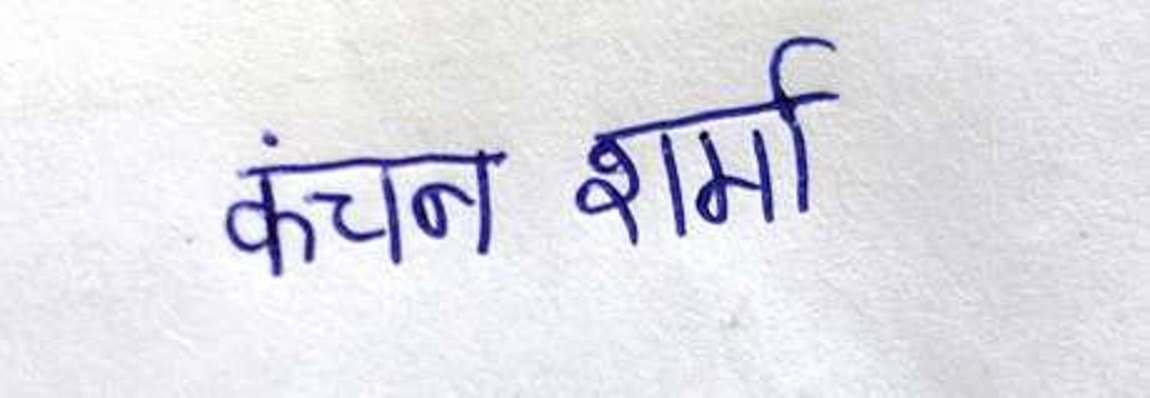 कंचन शर्मा